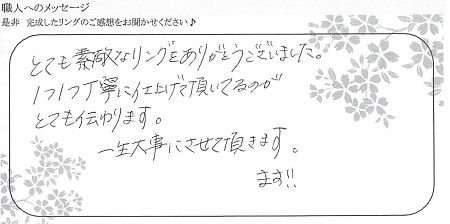 職人へのメッセージ
是非 完成したリングのご感想をお聞かせください♪
とても素敵なリングをありがとうございました。
1つ1つ丁寧に仕上げて頂いてるのが
とても伝わります。
一生大事にさせて頂きます。
ます!!